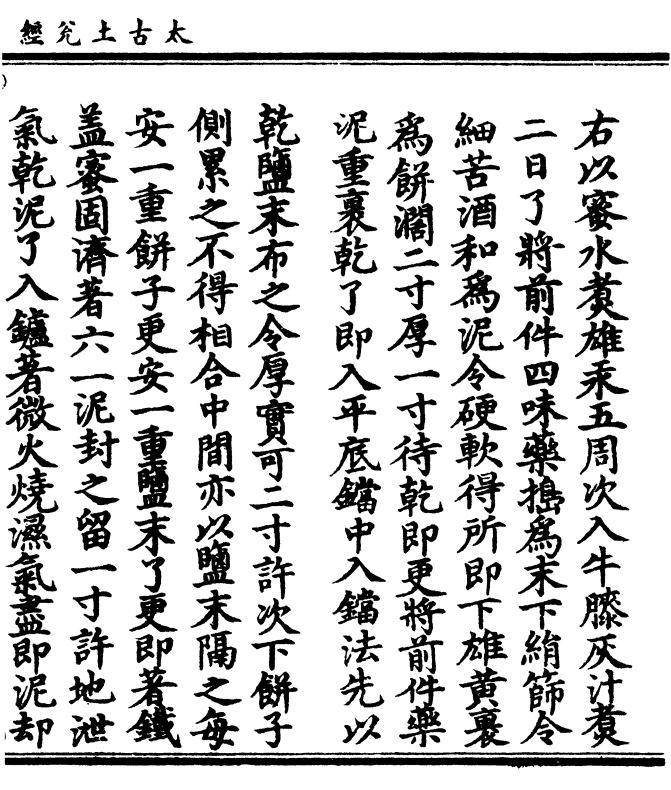 太古土兊經
右以蜜水煑雄汞五周次入牛膝灰汁煑
二日了將前件四味藥搗爲末下絹篩令
細苦酒和爲泥令硬軟得所即下雄黄裹
爲餅濶二寸厚一寸待乾即更將前件藥
泥重裹乾了即入平底鐺中入鐺法先以
乾鹽末布之令厚實可二寸許次下餅子
側累之不得相合中間亦以鹽末隔之每
安一重餅子更安一重鹽末了更即著鐵
盖蜜固濟著六一泥封之留一寸許地泄
氣乾泥了入鑪著微火燒濕氣盡即泥却